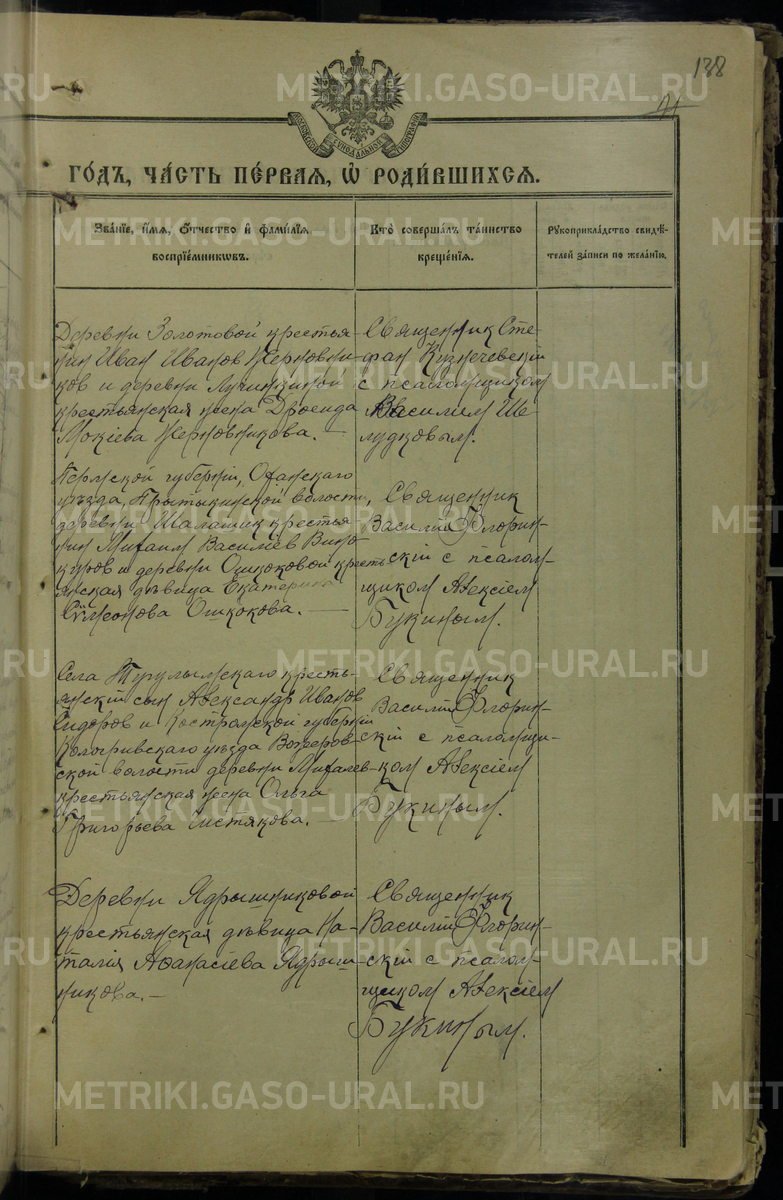 188
МОСКОВСКОЙ СѴНОДАЛЬНОЙ ТИПОГРАФІИ
ГО́ДЪ, ЧА́СТЬ ПЕ́РВАЯ, Ѿ РОДИ́ВШИХСЯ.
Зва́ніе, и́мя, ѻ́тчество и҆ фами́лія
воспріе́мниковъ.
Кто̀ соверша́лъ та́инство
креще́нія.
Рꙋкоприкла́дство свидѣ́-
телей за́писи по жела́нію.
Деревни Золотовой крестья-
нин Иван Иванов Жерновни-
ков и деревни Лучинкиной
крестьянская жена Дросида
Мокіева Жерновникова. —
Священник Сте-
фан Кузнечевскій
с псаломщиком
Василием Ше-
лудковым.
Пермской губерніи, Оханскаго
уѣзда, Притыкинской волости,
деревни Шалашик крестья-
нин Михаил Василіев Вино-
куров и деревни Ошкоковой кресть-
янская дѣвица Екатерина
Симеонова Ошкокова. —
Священник
Василий Флорин-
скій с псалом-
щиком Алексіем
Букиным.
Села Турулымскаго кресть-
янскій сын Александр Иванов
Сидоров и Костромской губерніи
Кологривскаго уѣзда Вожеров-
ской волости деревни Михалев
крестьянская жена Ольга
Григорьева Чистякова. —
Священник
Василий Флорин-
скій с псаломщи-
ком Алексіем
Букиным.
Деревни Ядрышниковой
крестьянская дѣвица На-
талія Аѳанасіева Ядрыш-
никова. —
Священник
Василий Флорин-
скій с псалом-
щиком Алексіем
Букиным.
METRIKI.GASO-URAL.RU